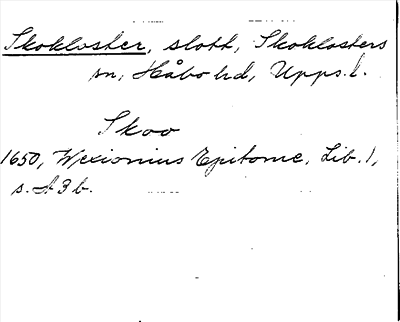 Skokloster, slott, Skoklosters
sn, Håbo hd, Upps. l.
Skoo
1650, Wexionius Epitome, Lib. 1,
s. A 3 b.